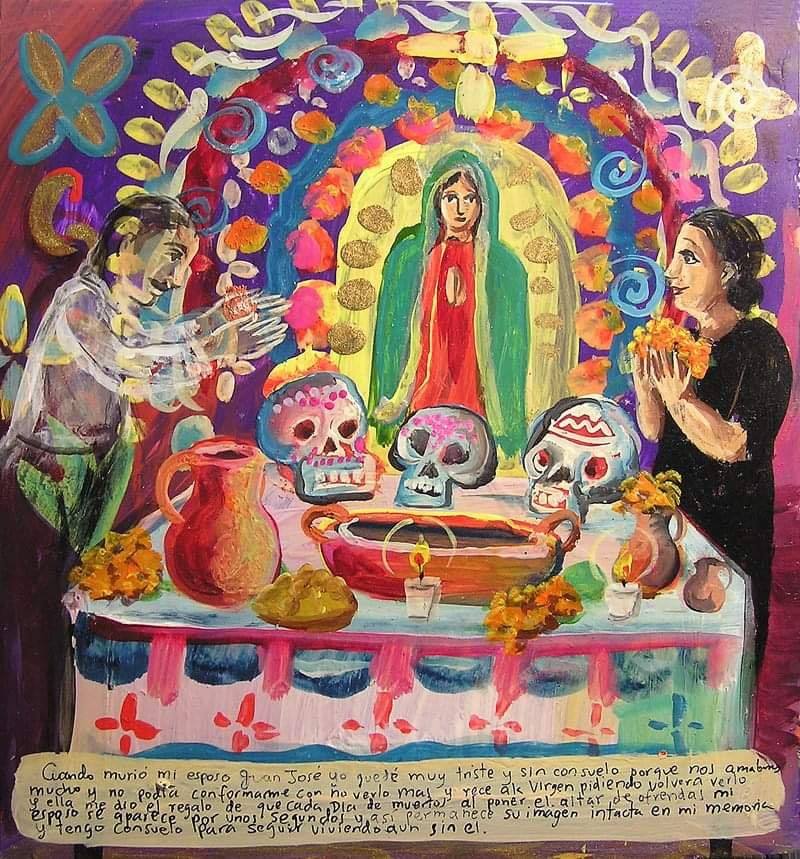 Cuando murió mi esposo Juan José yo quedé muy triste y sin consuelo porque nos amabamos
mucho y no podía conformarme con no verlo mas y rece ala Virgen pidiendo volvera verlo
y ella me dio el regalo de que cada Día de muertos al poner el altar de ofrendas mi
esposo se aparece por unos segundos y asi permanece su imagen intacta en mi memoria
y tengo consuelo para seguir viviendo aun sin el.